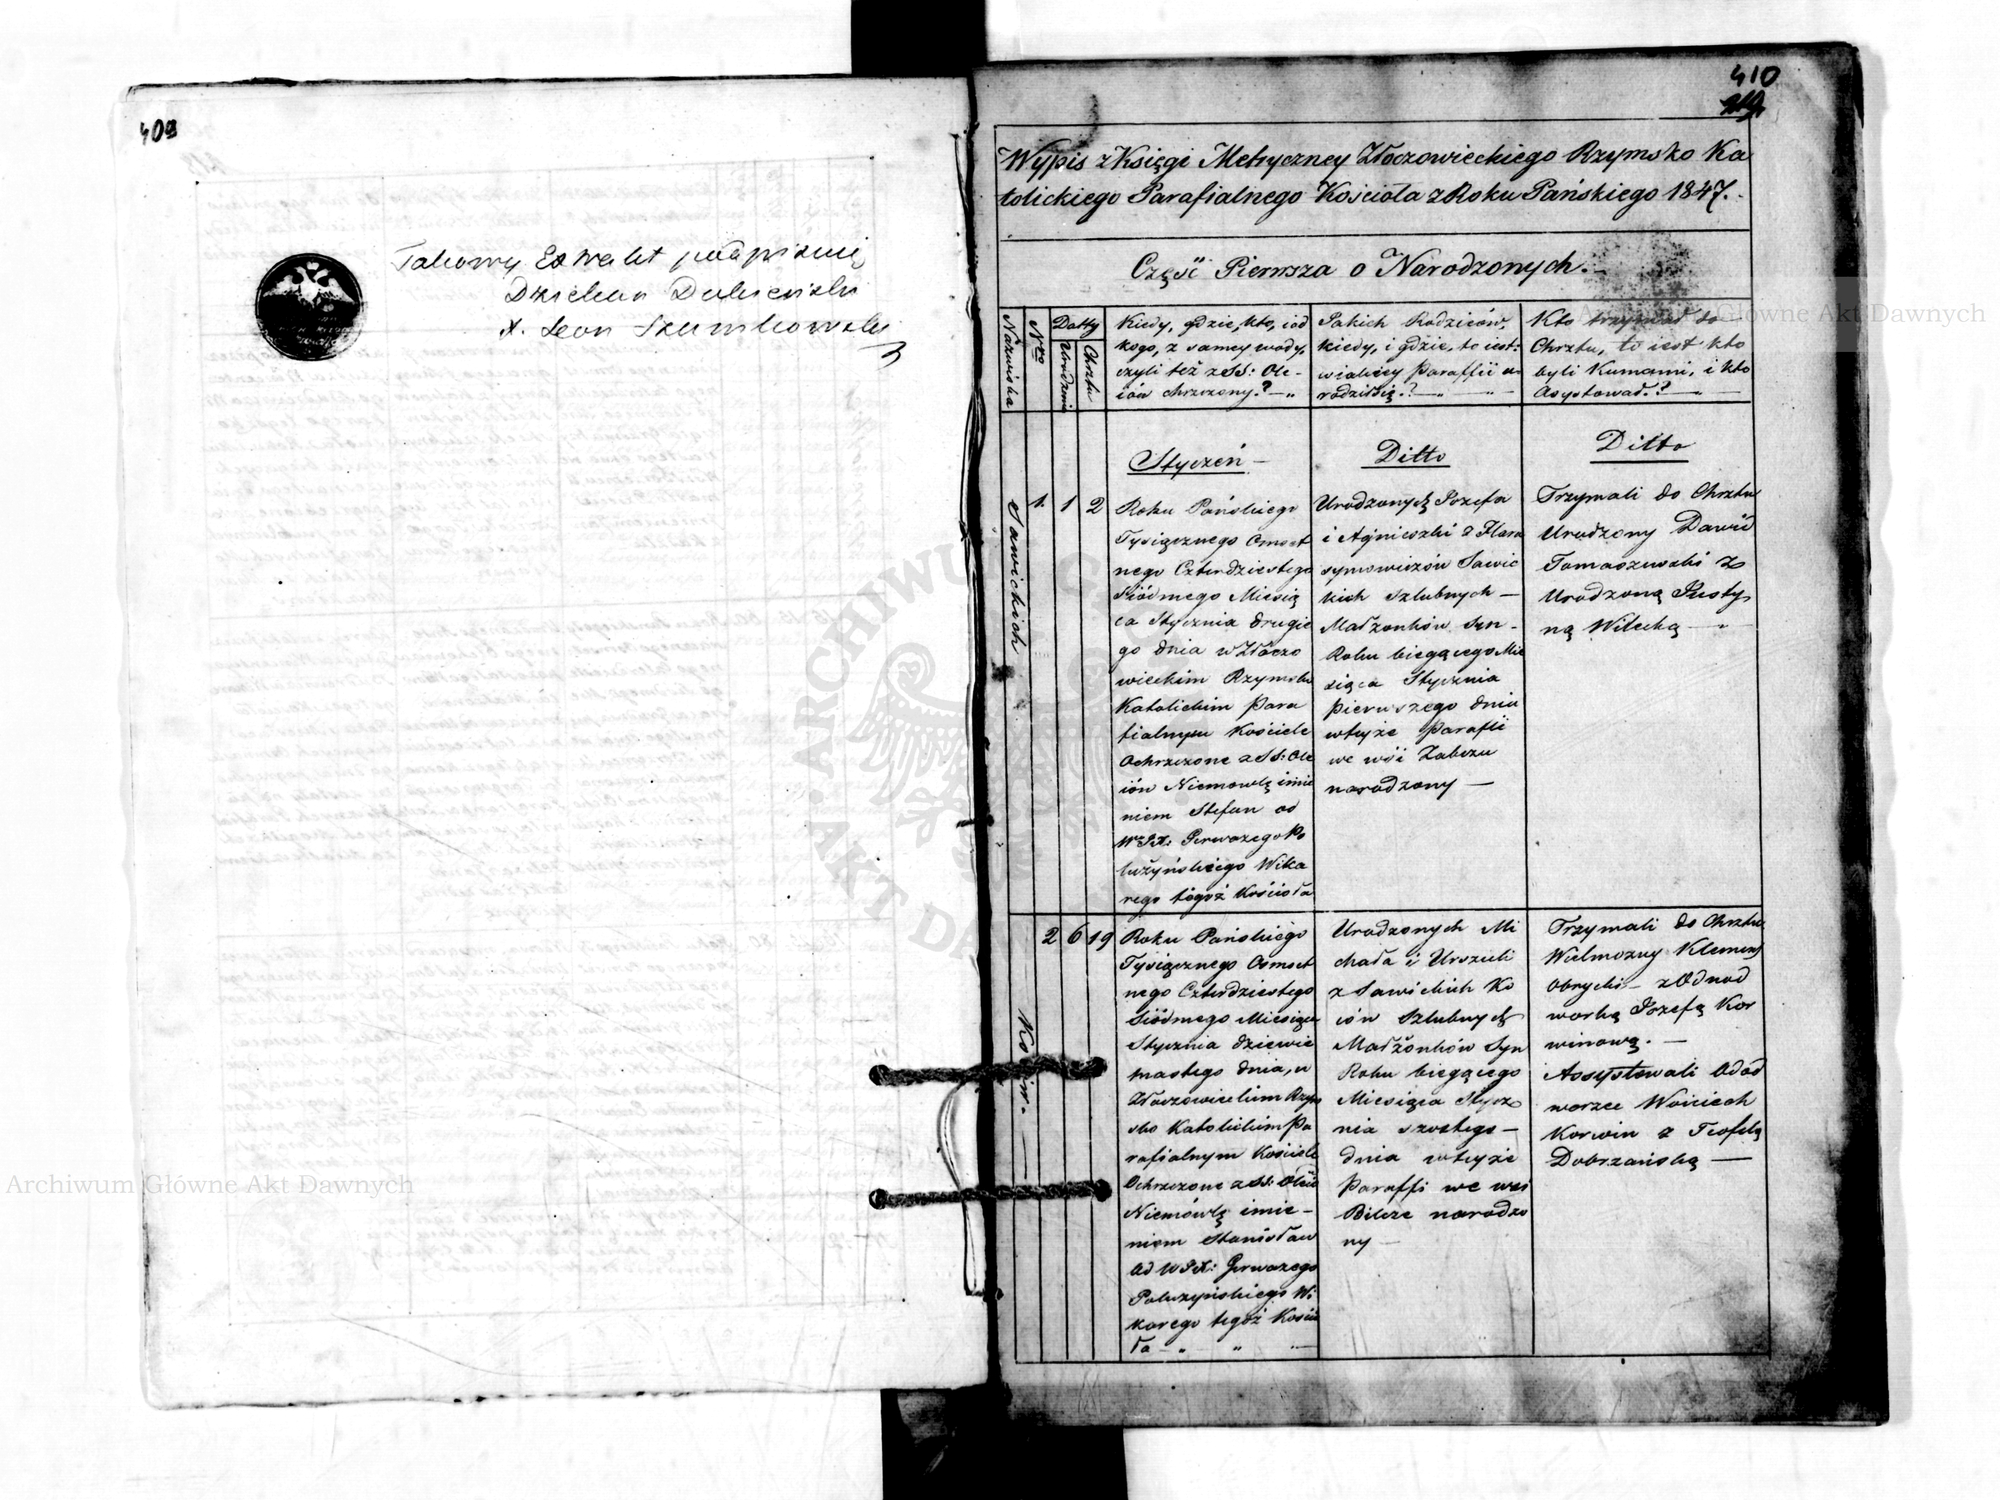 409
Takowy Extrakt podpisuię
Dziekan Dubieński
X. Leon Szumkowski
410
Wypis z Księgi Metryczney Złoczowieckiego Rzymsko Ka
tolickiego Parafialnego Kościoła z Roku Pańskiego 1847.
Część Pierwsza o Narodzonych.
Nazwiska
Nro
Datty
Urodzenia
Chrztu
Kiedy, gdzie, kto, i od
kogo, z samey wody,
czyli też z SS: Ole-
iów chrzczony?
Jakich Rodziców,
kiedy, i gdzie, to iest:
w iakiey Paraffii u
rodził się?
Kto trzymał do
Chrztu, to iest kto
byli Kumami, i kto
Asystował?
Styczeń
Ditto
Ditto
Sawickich
1.
1
2
Roku Pańskiego
Tysiącznego Osmset
nego Czterdziestego
Siódmego Miesią
ca Stycznia drugie
go dnia w Złoczo
wieckim Rzymsko
Katolickim Para
fialnym Kościele
Ochrzczone z SS: Ole
iów Niemowlę imie
niem Stefan od
W JX: Gerwazego Po
łużyńskiego Wika
rego togoż Kościoła
Urodzonych Józefa
i Agnieszki z Hara
symowiczów Sawic
kich Szlubnych
Małżonków Syn
Roku biegącego Mie
siąca Stycznia
pierwszego dnia
w teyże Parafii
we wsi Zabczu
narodzony
Trzymali do Chrztu
Urodzony Dawid
Tomaszewski z
Urodzoną Justy
ną Witecką
Kosiow.
2
6
19
Roku Pańskiego
Tysiącznego Osmset
nego Czterdziestego
Siódmego Miesiąca
Stycznia dziewię
tnastego dnia, w
Złoczowieckim Rzym
sko Katolickim Pa
rafialnym Kościele
Ochrzczone z SS: Oleiów
Niemówlę imie-
niem Stanisław
Od W JX: Gerwazego
Połużyńskiego Wi
karego tegoż Kościo
ła
Urodzonych Mi
chała i Urszuli
z Sawickich Ko
iów Szlubnych
Małżonków Syn
Roku biegącego
Miesiąca Stycz
nia szóstego
dnia w teyże
Paraffi we wsi
Bilcze narodzo
ny
Trzymali do Chrztu
Wielmożny Klemens
Obrycki z Odnod
worką Józefą Kor
winową.
Assystowali Odnod
worzec Woiciech
Korwin z Teofilą
Dobrzańską
Archiwum Główne Akt Dawnych
Archiwum Główne Akt Dawnych
ARCHIWUM GŁÓWNE AKT DAWNYCH